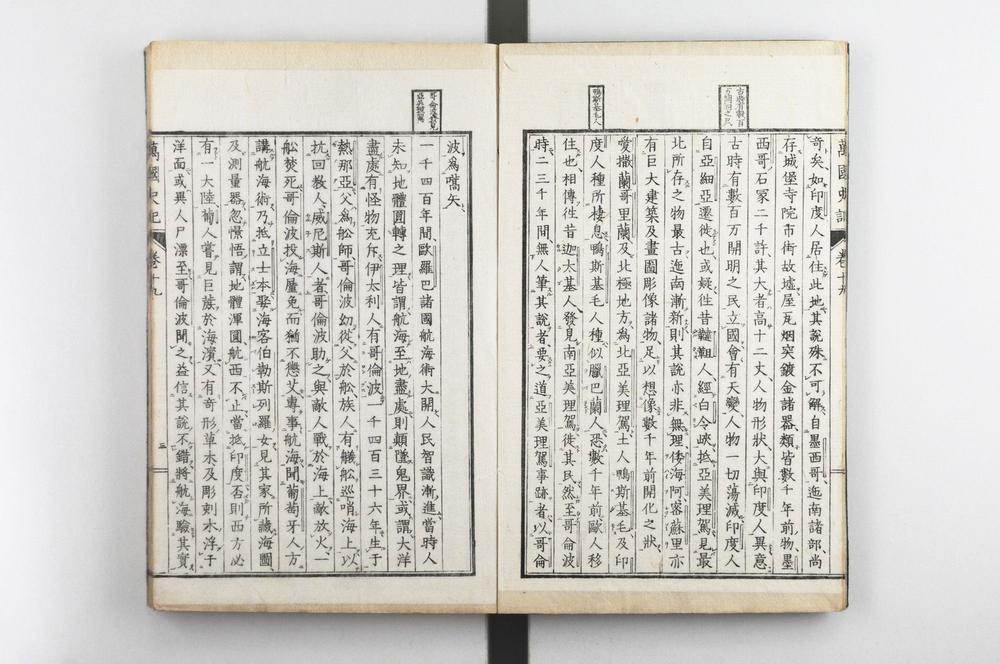 萬國史記 卷十九
奇矣如印度人居住此地其說殊不可解自墨西哥迤南諸部尚
存城堡寺院市街故墟屋瓦烟突鍍金諸器類皆數千年前物墨
西哥石冢二千許其大者高十二丈人物形狀大與印度人異意
古時有數百万開明之民立國會有天變人物一切蕩滅印度人
自亞細亞遷徙也或疑往昔韃靼人經白令峽抵亞美理駕見最
北所存之物最古迤南漸新則其說亦非無理倭海阿密蘇里亦
有巨大建築及畫圖彫像諸物足以想像數千年前開化之狀
愛撒蘭哥里蘭及北極地方為北亞美理駕土人鴨斯基毛及印
度人種所棲息鴨斯基毛人種似臘巴蘭人恐數千年前歐人移
住也相傳徃昔迦太基人發見南亞美理駕徙其民然至哥侖波
時二三千年間無人筆其說者要之道亞美理駕事跡者以哥倫
鴨斯基毛人
波為嚆矢
一千四百年間歐羅巴諸國航海術大開人民智識漸進當時人
未知地體圓轉之理皆謂航海至地盡處則顛墜鬼界或謂大洋
盡處有怪物充斥伊太利人有哥倫波一千四百三十六年生于
熱那亞父為舩師哥倫波幼從父於舩族人有艤舩巡哨海上以
抗回教人威尼斯人者哥倫波助之與敵人戰於海上敵放火一
舩焚死哥倫波投海廑免而猶不懲艾專事航海聞葡萄牙人方
講航海術乃抵立士本娶海客伯勒斯列羅女見其家所藏海圖
及測量器忽憬悟謂地體渾圓航西不止當抵印度否則西方必
有一大陸葡人嘗見巨蔟於海濱又有奇形草木及彫刻木浮于
洋面或異人尸漂至哥倫波聞之益信其說不錯將航海驗其實
萬國史記 卷十九 三